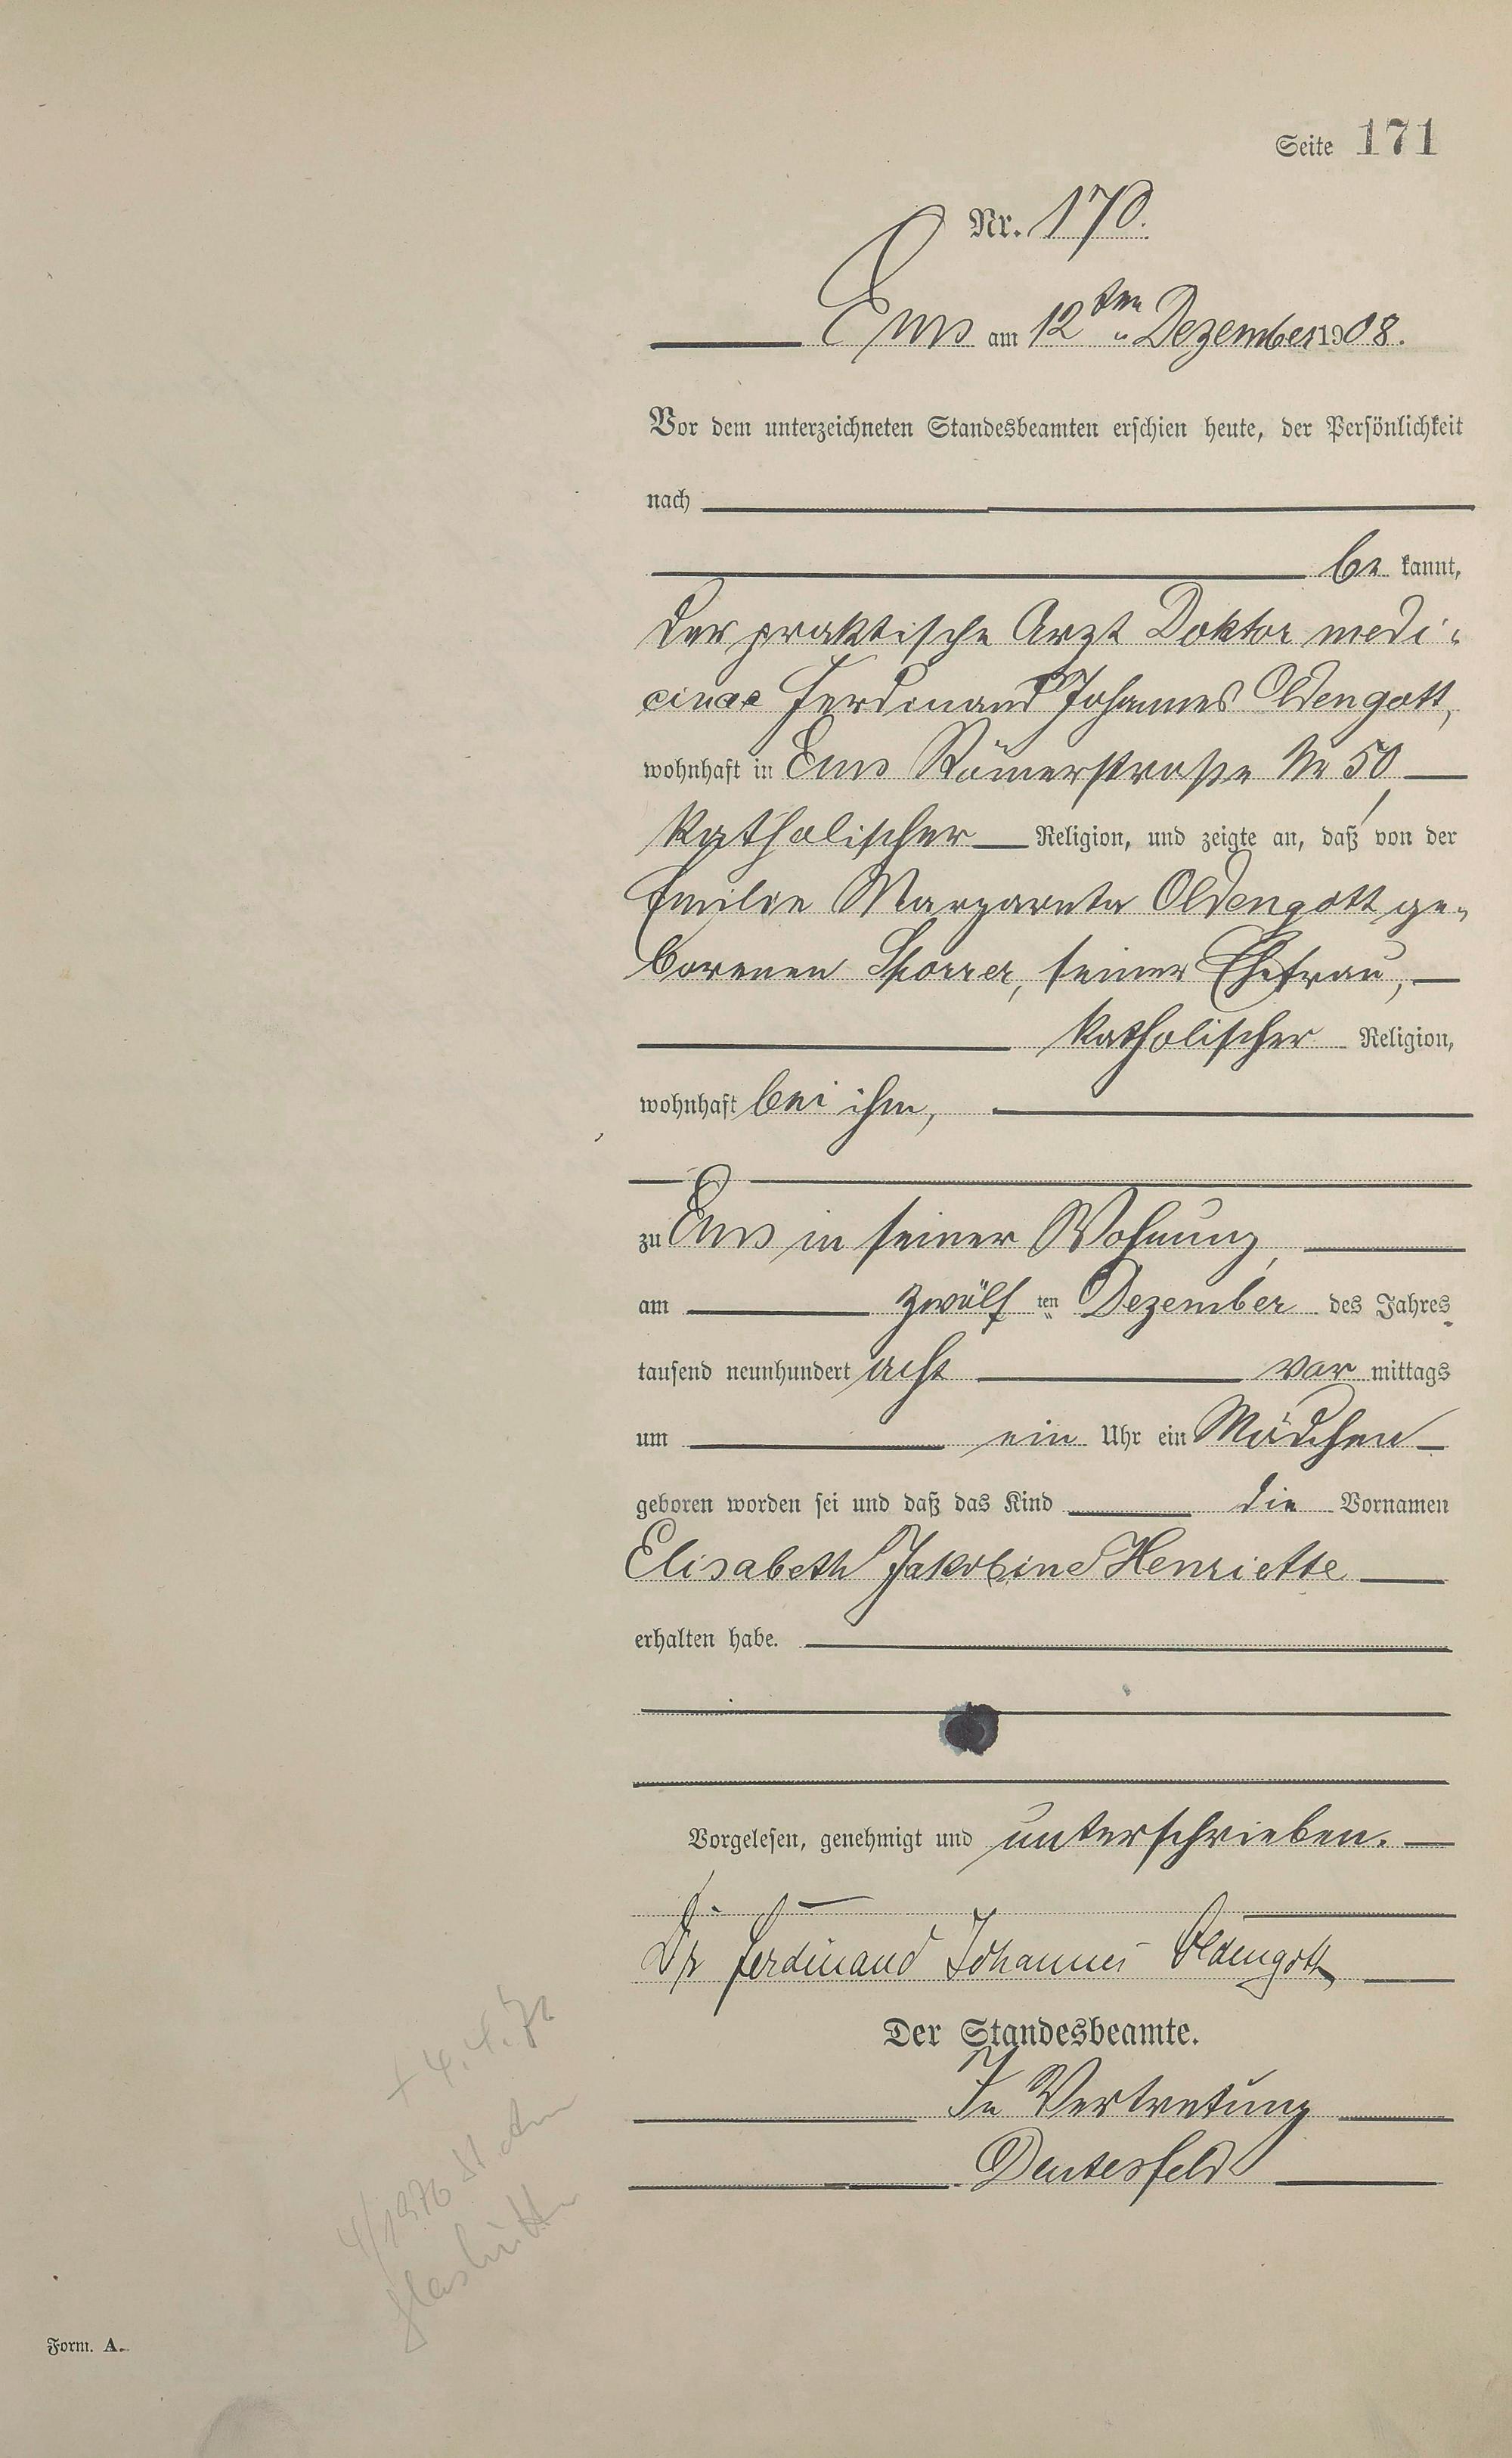 Seite 171
Nr. 170.
Ems am 12ten Dezember 1908.
Vor dem unterzeichneten Standesbeamten erschien heute, der Persönlichkeit
nach
be kannt,
der praktische Arzt Doktor medi-
cinae Ferdinand Johannes Oldengott,
wohnhaft in Ems Römerstraße Nr 50,
katholischer Religion, und zeigte an, daß von der
Emilie Margareta Oldengott ge-
borenen Sporrer, seiner Ehefrau,
katholischer Religion,
wohnhaft bei ihm,
zu Ems in seiner Wohnung,
am zwölf ten Dezember des Jahres
tausend neunhundert acht vor mittags
um ein Uhr ein Mädchen
geboren worden sei und daß das Kind die Vornamen
Elisabeth Jakobine Henriette
erhalten habe.
Vorgelesen, genehmigt und unterschrieben.
Dr Ferdinand Johannes Oldengott
Der Standesbeamte.
In Vertretung
Deutesfeld
4/1976 St. Am
Glashütte
Form. A.